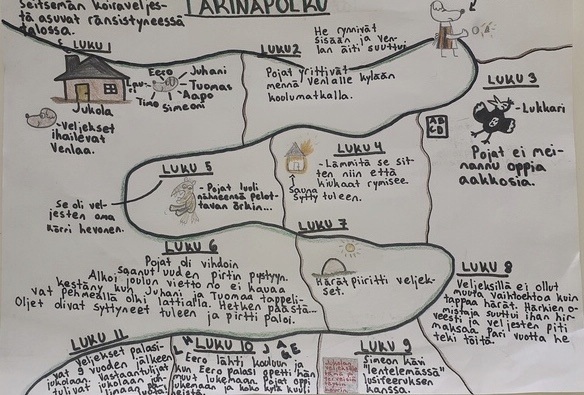 TARINAPOLKU
seitsemän koiraveljes-
tä asuvat ränsistyneessä
talossa.
LUKU 1
Jukola
Eero
Juhani
Tuomas
Aapo
Simeoni
Timo
Lau-
-Veljekset
ihailevat
Venlaa.
LUKU2
Pojat yrittivät
mennä Venlalle kylään
koulumatkalla.
He rynnivät
sisään ja Ven-
lan äiti suuttui
LUKU 3
-Lukkari
AB
CD
Pojat ei mei-
nannu oppia
aakkosia.
LUKU 4
-Lämmitä se sit-
ten niin että
kiukaat rymisee.
Sauna
syttyi tuleen.
LUKU 5
- Pojat luuli
nähneensä pelot-
tavan örkin...
Se oli vel-
jesten oma
Kärri hevonen.
LUKU 6
Pojat oli vihdoin
saanut uuden pirtin pystyyn.
Alkoi joulun vietto no ei kauaa
kestäny kun Juhani ja Tuomaa tappeli-
vat pehmeällä olki lattialla. Hetken päästä...
Oljet olivat syttyneet tuleen ja pirtti paloi.
LUKU 7
Härät piiritti veljek-
set.
LUKU 8
Veljeksillä ei ollut
muuta vaihtoehtoa kuin
tappaa härät. Härkien o-
mistaja suuttui ihan hir-
veesti ja veljesten piti
maksaa. Pari vuotta he
teki töitä.
LUKU 9
Simeon kävi
"lentelemässä"
lusifeeruksen
kanssa.
LUKU 10
Eero lähti kouluun ja
kun Eero palasi opetti hän
muut lukemaan. Pojat oppi
lukemaan ja koko kylä kuuli
LUKU 11
Veljekset palasi-
vat 9 vuoden jälkeen
Jukolaan. Vastaantulijat
tulivat Jukolaan